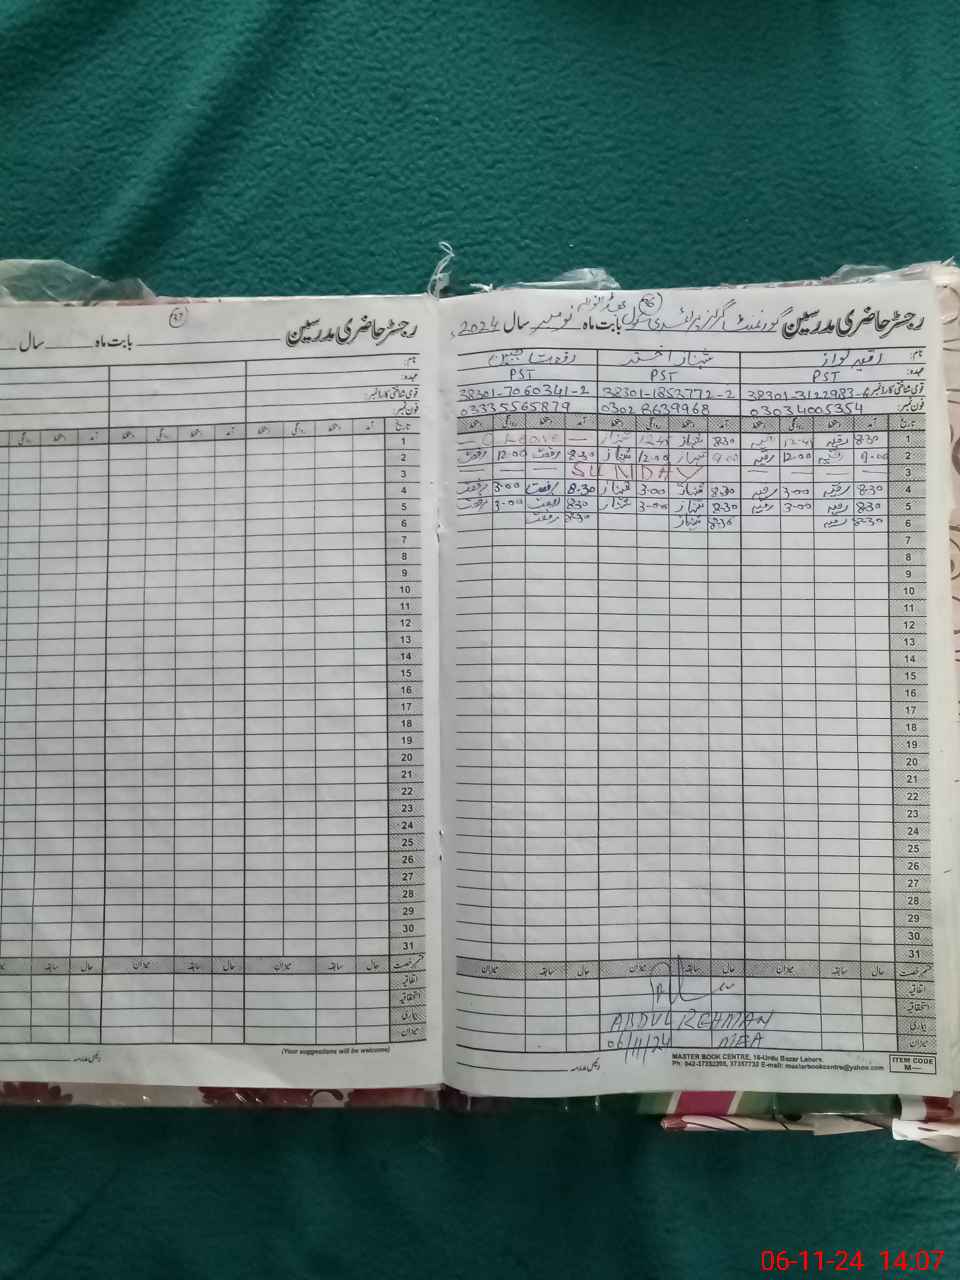 96
رجسٹر حاضری مدرسین گورنمنٹ گرلز پرائمری سکول بابت ماہ نومبر سال 2024ء
نام:
شہناز اختر
عہدہ: PST PST PST
قومی شناختی کارڈ نمبر: 38301-3122983-6 38301-1853772-2 38301-7060341-2
فون نمبر: 03034005354 0302 8639968 03335565879
تاریخ آمد دستخط روانگی دستخط آمد دستخط روانگی دستخط آمد دستخط روانگی دستخط
1 8:30 رقیہ 12-45 رقیہ 8:30 شہناز 12-45 شہناز — C Leave —
2 9-00 رقیہ 12-00 رقیہ 9-00 شہناز 12-00 شہناز 8-30 رفعت 12-00 رفعت
3 — — — — SUNDAY — —
4 8-30 رقیہ 3-00 رقیہ 8-30 شہناز 3-00 شہناز 8-30 رفعت 3-00 رفعت
5 8-30 رقیہ 3-00 رقیہ 8-30 شہناز 3-00 شہناز 8-30 رفعت 3-00 رفعت
6 8-30 رقیہ 8-30 شہناز 8-30 رفعت
7
8
9
10
11
12
13
14
15
16
17
18
19
20
21
22
23
24
25
26
27
28
29
30
31
قسم رخصت حال سابقہ میزان حال سابقہ میزان حال سابقہ میزان
اتفاقیہ
استحقاقیہ
بیماری
میزان
ABDUL REHMAN
06/11/24 MEA
MASTER BOOK CENTRE, 16-Urdu Bazar Lahore.
E-mail: masterbookcentre@yahoo.com
ITEM CODE
M—
97
رجسٹر حاضری مدرسین بابت ماہ سال
نام:
عہدہ:
قومی شناختی کارڈ نمبر:
فون نمبر:
تاریخ آمد دستخط روانگی دستخط آمد دستخط روانگی دستخط
1
2
3
4
5
6
7
8
9
10
11
12
13
14
15
16
17
18
19
20
21
22
23
24
25
26
27
28
29
30
31
قسم رخصت حال سابقہ میزان حال سابقہ میزان حال سابقہ
اتفاقیہ
استحقاقیہ
بیماری
میزان
(Your suggestions will be welcome)
06-11-24 14:07